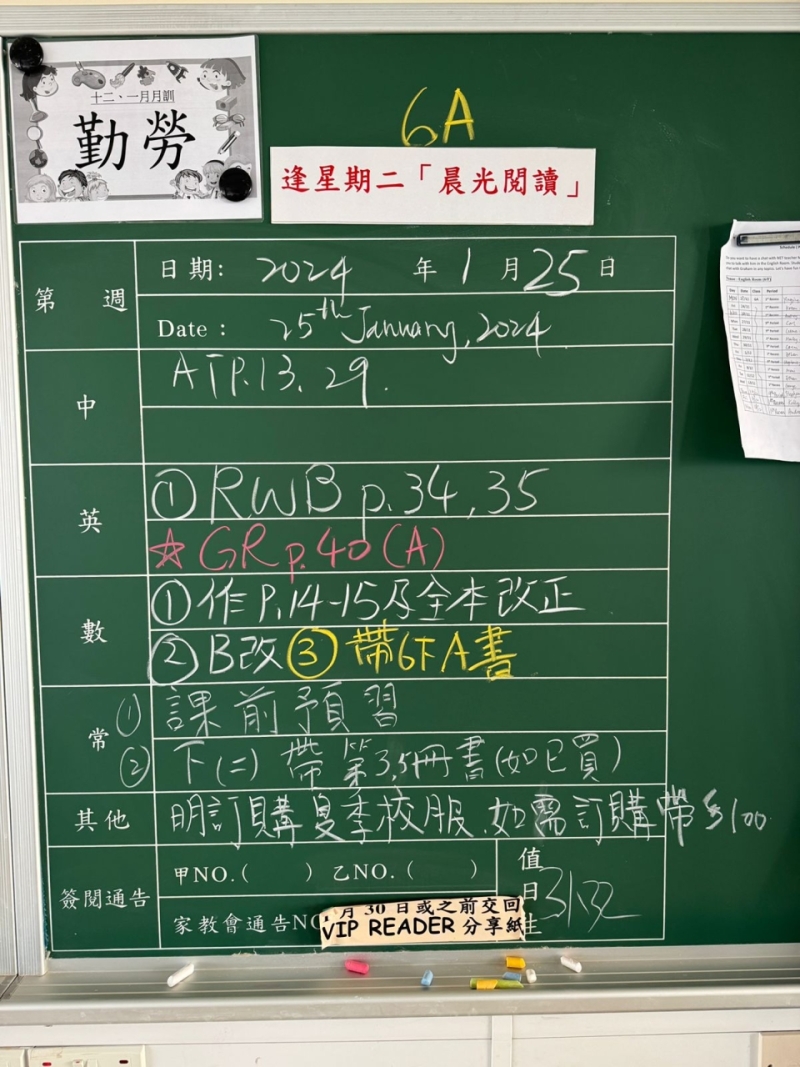 十二、一月月訓
勤勞
6A
逢星期二「晨光閱讀」
第 週
日期: 2024 年 1 月 25 日
Date : 25th January, 2024
中
ATP.13. 29.
英
① RWB p.34, 35
☆ GR p.40 (A)
數
① 作 P.14-15及全本改正
② B改 ③ 帶6下A書
常
① 課前預習
② 下(二) 帶第3,5冊書(如已買)
其他
明訂購夏季校服.如需訂購帶$100
簽閱通告
甲NO.( ) 乙NO.( )
家教會通告NO
值日生
31,32
月 30 日或之前交回
VIP READER 分享紙